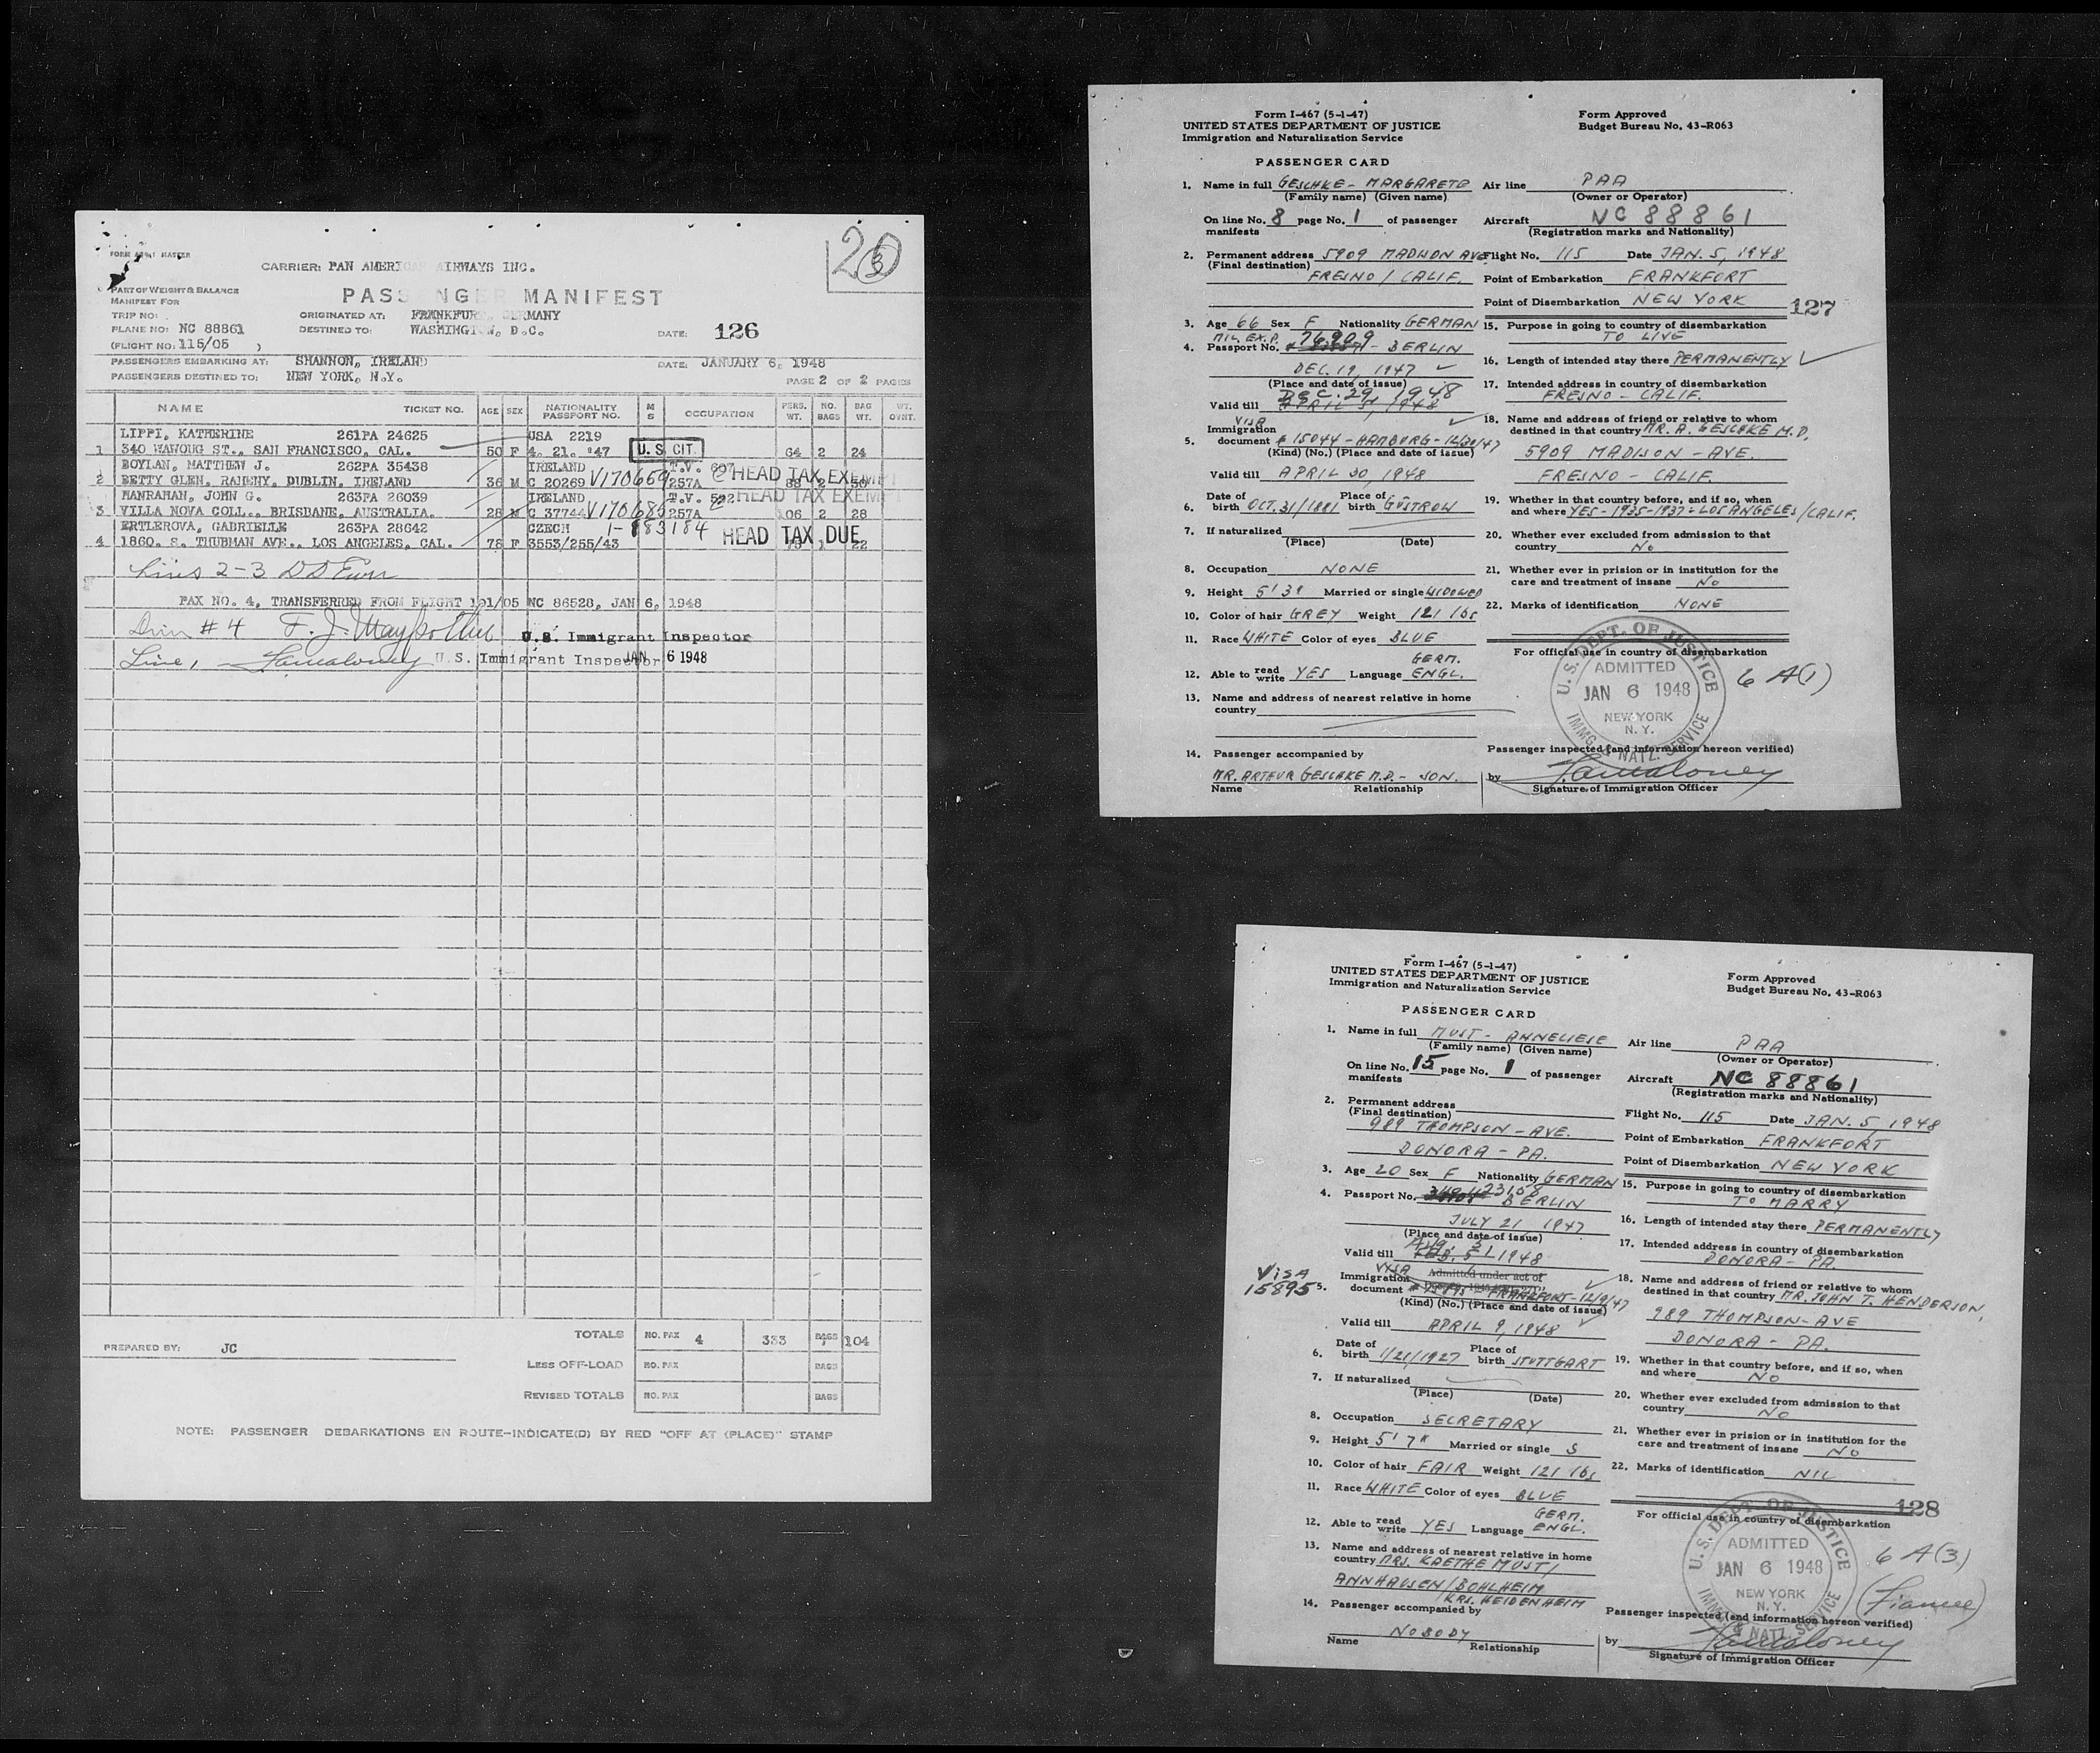 20
FORM MASTER
CARRIER: PAN AMERICAN AIRWAYS INC.
PART OF WEIGHT & BALANCE
MANIFEST FOR
PASSENGER MANIFEST
TRIP NO: ORIGINATED AT: FRANKFURT, GERMANY
PLANE NO: NC 88861 DESTINED TO: WASHINGTON, D.C. DATE: 126
(FLIGHT NO: 115/05 )
PASSENGERS EMBARKING AT: SHANNON, IRELAND DATE: JANUARY 6, 1948
PASSENGERS DESTINED TO: NEW YORK, N.Y. PAGE 2 OF 2 PAGES
NAME TICKET NO. AGE SEX NATIONALITY PASSPORT NO. M S OCCUPATION PERS. WT. NO. BAGS BAG WT. WT. OVWT.
LIPPI, KATHERINE 261PA 24625 USA 2219
1 340 WAWOUG ST., SAN FRANCISCO, CAL. 50 F 4. 21. '47 U.S. CIT. 64 2 24
BOYLAN, MATTHEW J. 262PA 35438 IRELAND V170659 T.V. 607 HEAD TAX EXEMPT
2 BETTY GLEN, RAHENY, DUBLIN, IRELAND 36 M C 20269 257A 88 2 30
HANRAHAN, JOHN G. 263PA 26039 IRELAND V170685 T.V. 592 HEAD TAX EXEMPT
3 VILLA NOVA COLL., BRISBANE, AUSTRALIA. 28 M C 37744 257A 106 2 28
ERTLEROVA, GABRIELLE 263PA 28642 CZECH 1-883184 HEAD TAX DUE
4 1860. S. THUBMAN AVE., LOS ANGELES, CAL. 78 F 3553/255/43 75 1 22
Lines 2-3
PAX NO. 4, TRANSFERRED FROM FLIGHT 101/05 NC 86528, JAN 6, 1948
# 4 U.S. Immigrant Inspector
Line 1 U.S. Immigrant Inspector JAN 6 1948
TOTALS NO. PAX 4 333 BAGS 7 104
PREPARED BY: JC
LESS OFF-LOAD NO. PAX BAGS
REVISED TOTALS NO. PAX BAGS
NOTE: PASSENGER DEBARKATIONS EN ROUTE-INDICATE(D) BY RED "OFF AT (PLACE)" STAMP
Form I-467 (5-1-47) Form Approved
UNITED STATES DEPARTMENT OF JUSTICE Budget Bureau No. 43-R063
Immigration and Naturalization Service
PASSENGER CARD
1. Name in full GESCHKE - MARGARETE
(Family name) (Given name)
On line No. 8 page No. 1 of passenger
manifests
2. Permanent address 5909 MADISON AVE
(Final destination) FRESNO / CALIF.
3. Age 66 Sex F Nationality GERMAN
MIL. EX. P. 76909
4. Passport No. - BERLIN
DEC. 19, 1947
(Place and date of issue)
DEC. 29, 1948
Valid till
VISA
Immigration
5. document # 15044 - HAMBURG - 12/30/47
(Kind) (No.) (Place and date of issue)
Valid till APRIL 30, 1948
6. Date of birth OCT. 31/1881 Place of birth GÜSTROW
7. If naturalized
(Place) (Date)
8. Occupation NONE
9. Height 5' 3" Married or single WIDOWED
10. Color of hair GREY Weight 121 lbs
11. Race WHITE Color of eyes BLUE
12. Able to read write YES Language GERM. ENGL.
13. Name and address of nearest relative in home
country
14. Passenger accompanied by
MR. ARTHUR GESCHKE M.D. - SON.
Name Relationship
Air line PAA
(Owner or Operator)
Aircraft NC 88861
(Registration marks and Nationality)
Flight No. 115 Date JAN. 5, 1948
Point of Embarkation FRANKFORT
Point of Disembarkation NEW YORK
127
15. Purpose in going to country of disembarkation
TO LIVE
16. Length of intended stay there PERMANENTLY
17. Intended address in country of disembarkation
FRESNO - CALIF.
18. Name and address of friend or relative to whom
destined in that country MR. A. GESCHKE M.D.
5909 MADISON - AVE.
FRESNO - CALIF.
19. Whether in that country before, and if so, when
and where YES - 1935-1937 - LOS ANGELES / CALIF.
20. Whether ever excluded from admission to that
country No
21. Whether ever in prision or in institution for the
care and treatment of insane No
22. Marks of identification NONE
For official use in country of disembarkation
U.S. DEPT. OF JUSTICE
ADMITTED
JAN 6 1948
NEW YORK
N.Y.
IMMG. & NATZ. SERVICE
6 A(1)
Passenger inspected (and information hereon verified)
by
Signature of Immigration Officer
Form I-467 (5-1-47) Form Approved
UNITED STATES DEPARTMENT OF JUSTICE Budget Bureau No. 43-R063
Immigration and Naturalization Service
PASSENGER CARD
1. Name in full MUST - ANNELIESE
(Family name) (Given name)
On line No. 15 page No. 1 of passenger
manifests
2. Permanent address
(Final destination)
989 THOMPSON - AVE.
DONORA - PA.
3. Age 20 Sex F Nationality GERMAN
4. Passport No. BERLIN
JULY 21 1947
(Place and date of issue)
Valid till 1948
VISA
Admitted under act of
Visa 15895
5. Immigration document FRANKFORT - 12/9/47
(Kind) (No.) (Place and date of issue)
Valid till APRIL 9, 1948
6. Date of birth 1/21/1927 Place of birth STUTTGART
7. If naturalized
(Place) (Date)
8. Occupation SECRETARY
9. Height 5' 7" Married or single S
10. Color of hair FAIR Weight 121 lbs
11. Race WHITE Color of eyes BLUE
12. Able to read write YES Language GERM. ENGL.
13. Name and address of nearest relative in home
country MRS. KAETHE MUST /
ANNHAUSEN / BOHLHEIM
/ KRS. HEIDENHEIM
14. Passenger accompanied by
NOBODY
Name Relationship
Air line PAA
(Owner or Operator)
Aircraft NC 88861
(Registration marks and Nationality)
Flight No. 115 Date JAN. 5, 1948
Point of Embarkation FRANKFORT
Point of Disembarkation NEW YORK
15. Purpose in going to country of disembarkation
TO MARRY
16. Length of intended stay there PERMANENTLY
17. Intended address in country of disembarkation
DONORA - PA.
18. Name and address of friend or relative to whom
destined in that country MR. JOHN T. HENDERSON,
989 THOMPSON - AVE
DONORA - PA.
19. Whether in that country before, and if so, when
and where No
20. Whether ever excluded from admission to that
country No
21. Whether ever in prision or in institution for the
care and treatment of insane No
22. Marks of identification NIL
128
For official use in country of disembarkation
U.S. DEPT. OF JUSTICE
ADMITTED
JAN 6 1948
NEW YORK
N.Y.
IMMG. & NATZ. SERVICE
6 A(3)
(Fiancee)
Passenger inspected (and information hereon verified)
by
Signature of Immigration Officer